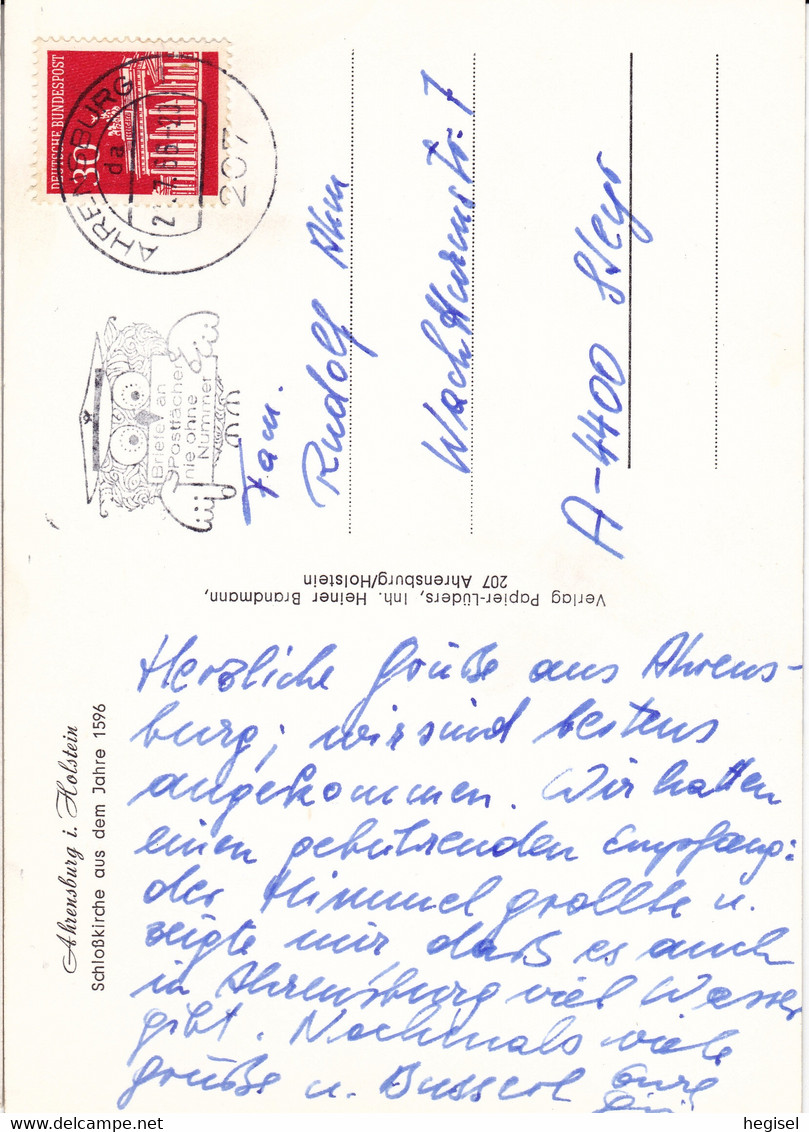 Ahrensburg i. Holstein
Schloßkirche aus dem Jahre 1596
Herzliche Grüße aus Ahrens-
burg; wir sind bestens
angekommen. Wir hatten
einen gebührenden Empfang:
der Himmel grollte u.
zeigte mir daß es auch
in Ahrensburg viel Wasser
gibt. Nochmals viele
Grüße u. Busserl Eure
Verlag Papier-Lüders, Inh. Heiner Brandmann,
207 Ahrensburg/Holstein
DEUTSCHE BUNDESPOST
30
AHRENSBURG
da
207
Briefe an
Postfächer
nie ohne
Nummer
Fam.
Rudolf
A-4400 Steyr
hegisel